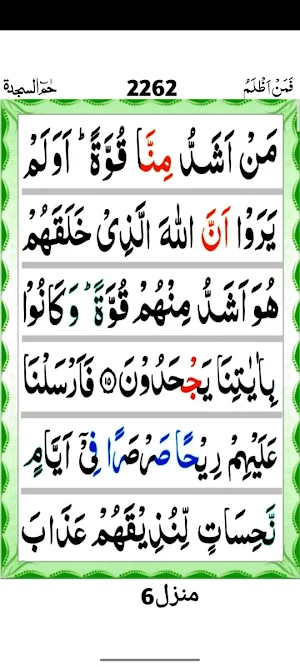 فَمَنْ اَظْلَمُ 2262 حٰمٓ السجدة
مَنْ اَشَدُّ مِنَّا قُوَّةً ؕ اَوَلَمْ
يَرَوْا اَنَّ اللّٰهَ الَّذِیْ خَلَقَهُمْ
هُوَ اَشَدُّ مِنْهُمْ قُوَّةً ؕ وَ كَانُوْا
بِاٰيٰتِنَا يَجْحَدُوْنَ ۝۱۵ فَاَرْسَلْنَا
عَلَيْهِمْ رِيْحًا صَرْصَرًا فِیْۤ اَيَّامٍ
نَّحِسَاتٍ لِّنُذِيْقَهُمْ عَذَابَ
منزل 6